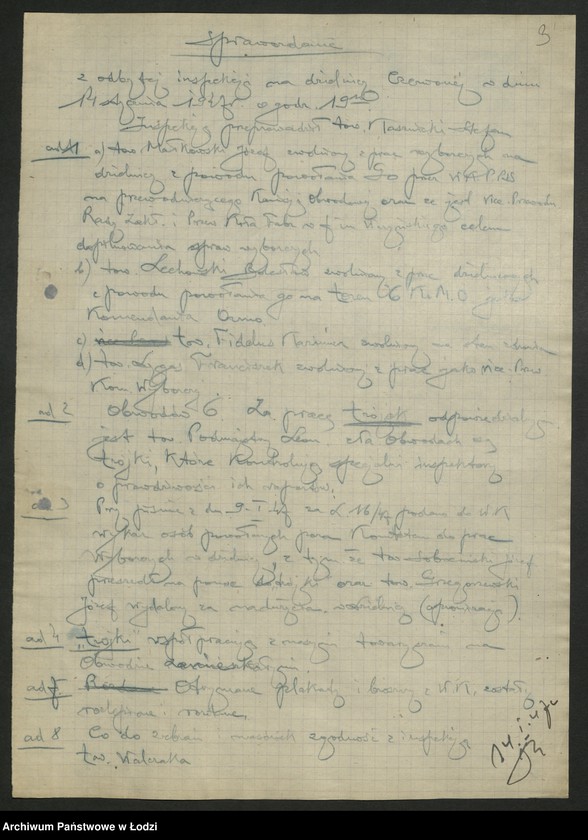 3
Sprawozdanie
z odbytej inspekcji na dzielnicy Czerwonej w dniu
14 stycznia 1947r. o godz. 19
Inspekcję przeprowadził tow. Stefan
ad 1 a) tow. Małkowski Józef zwolniony z prac wyborczych na
dzielnicy z powodu powołania Go przez W.K. P.P.S
na przewodniczącego Komisji Obwodowej oraz że jest vice. Przewodn.
Rady Zakł. i Przew. Koła Fabr. w f. im celem
dopilnowania spraw wyborczych
b) tow. Lechowski zwolniony z prac dzielnicowych
z powodu powołania go na teren 6 K.M.O jako
Komendanta Ormo.
c) tow. Fidelus Kazimierz zwolniony na
d) tow. Franciszek zwolniony z pracy jako vice-Przew
Kom. Wyborczej
ad 2 Obwodów 6 Za pracę trójek odpowiedzialnym
jest tow. Podmiejski Leon. Na obwodach są
trójki, które kontrolują specjalni inspektorzy
o prawdziwości ich raportów.
ad 3 Przy piśmie z dn. 9. I. 47 za L 16/47 podano do W.K
wykaz osób powołanych przez Komitet do prac
wyborczych w dzielnicy, z tym że tow. Józef
przeszedł na pomoc "trójki" oraz tow. Grzegorzewski
Józef wydalony za nadużycia
ad 4 "trójki" współpracują z naszymi towarzyszami na
Obwodzie
ad 7 Otrzymane plakaty i broszury z W.K. zostały
rozlepione i rozdane.
ad 8 Co do zebrań i masówek zgodność z inspekcją
tow. Walczaka
14. I. 47r
Archiwum Państwowe w Łodzi